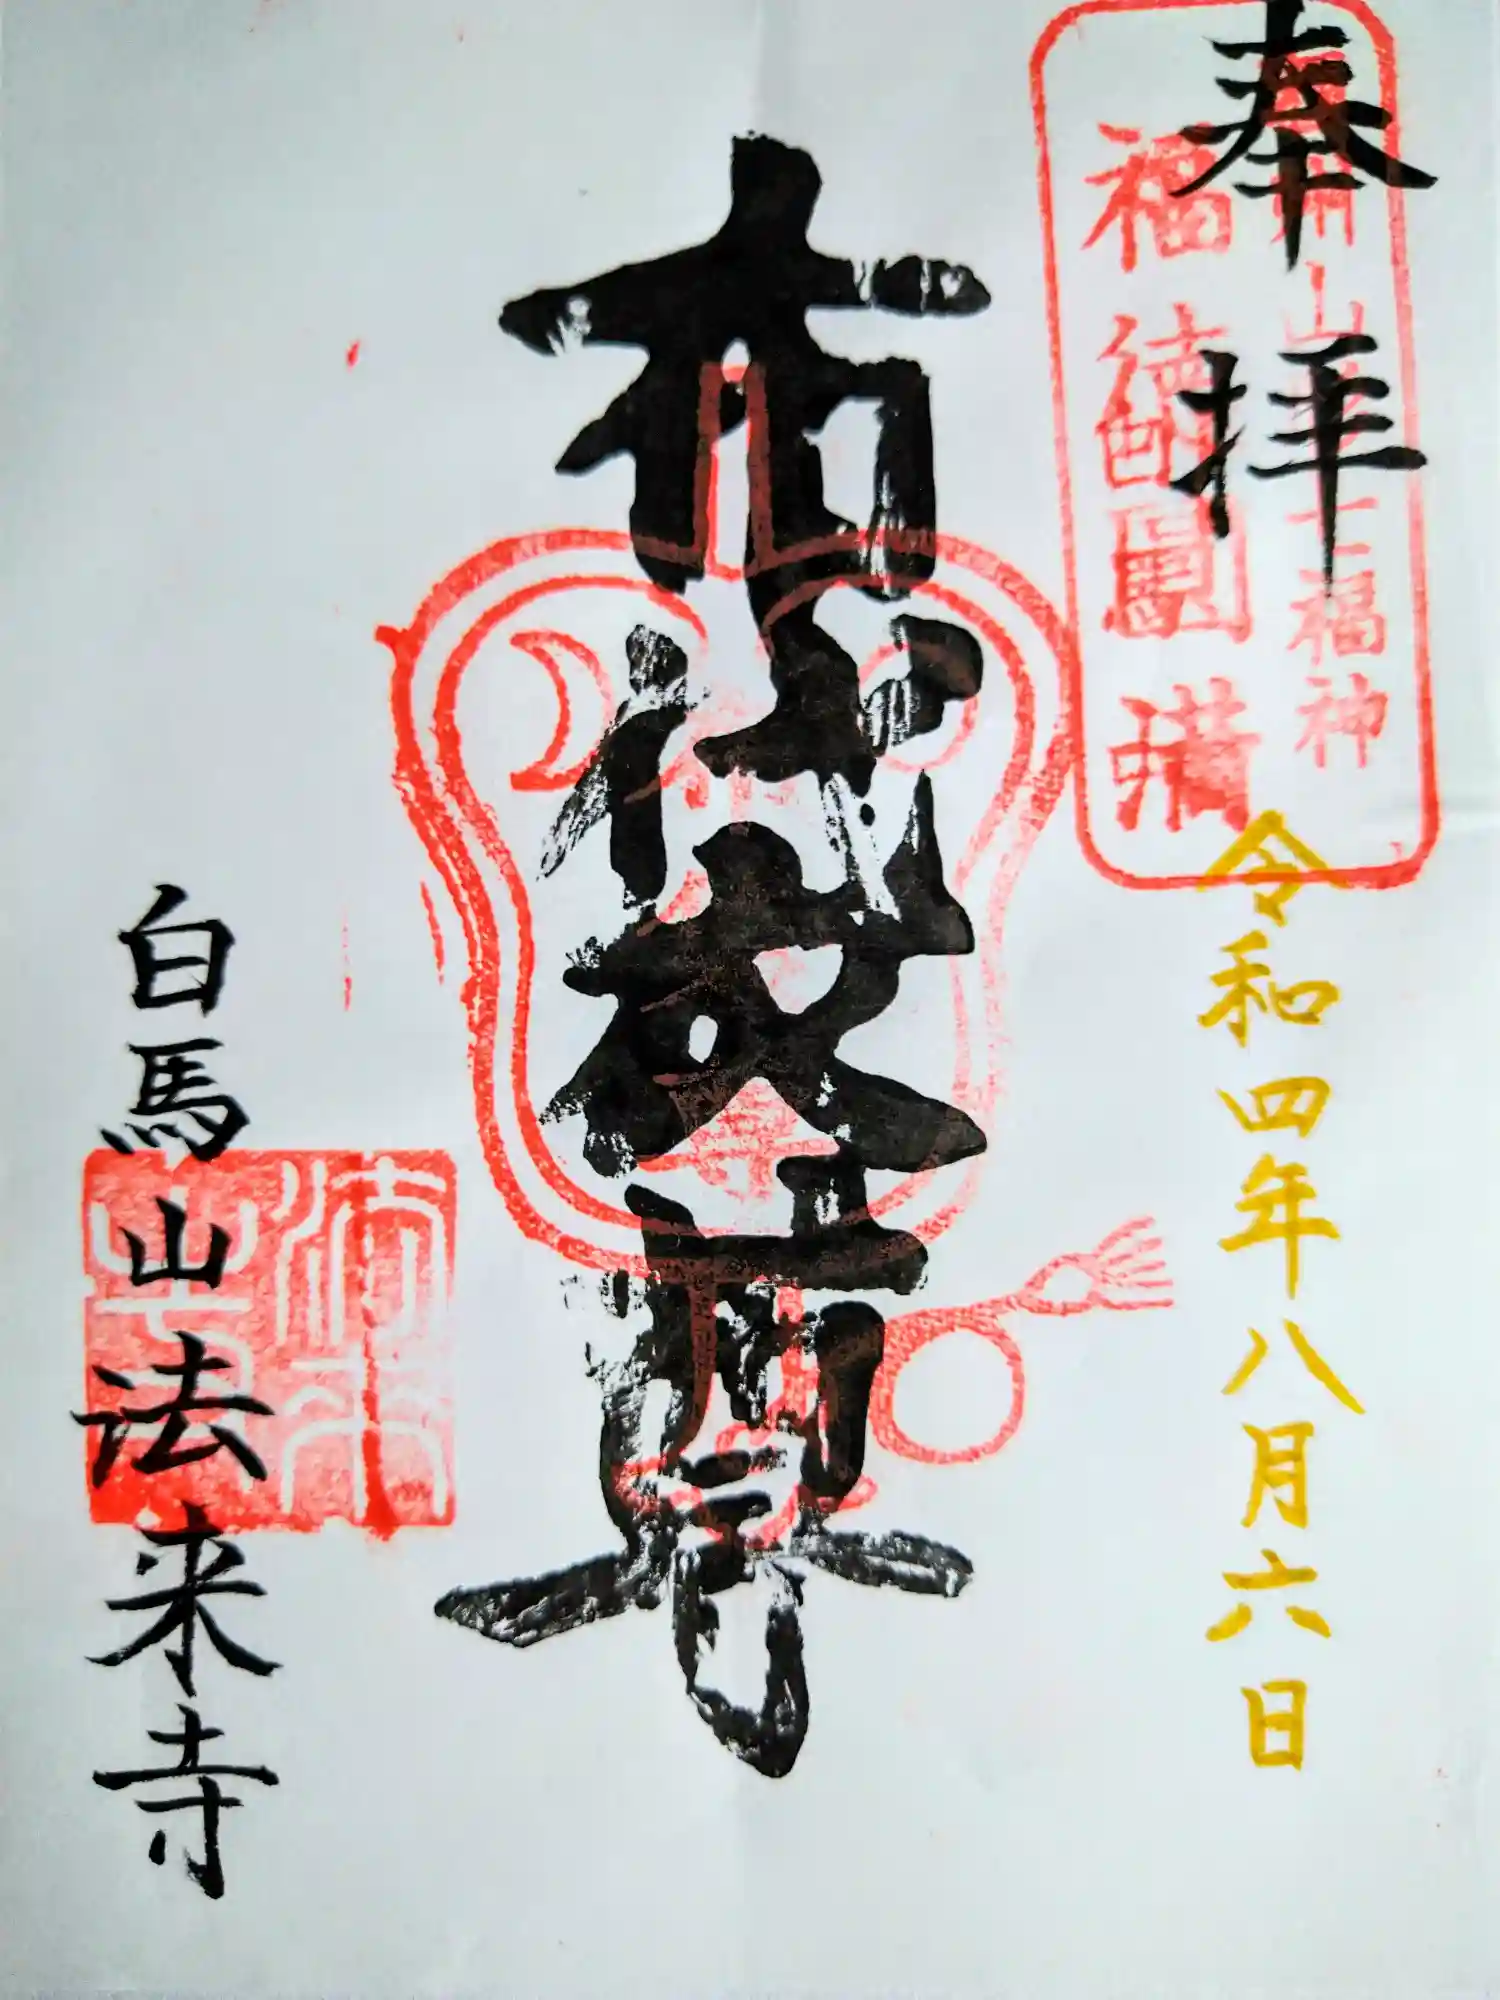 奉拝
福神
福徳圓満
令和四年八月六日
布袋尊
白馬山法来寺